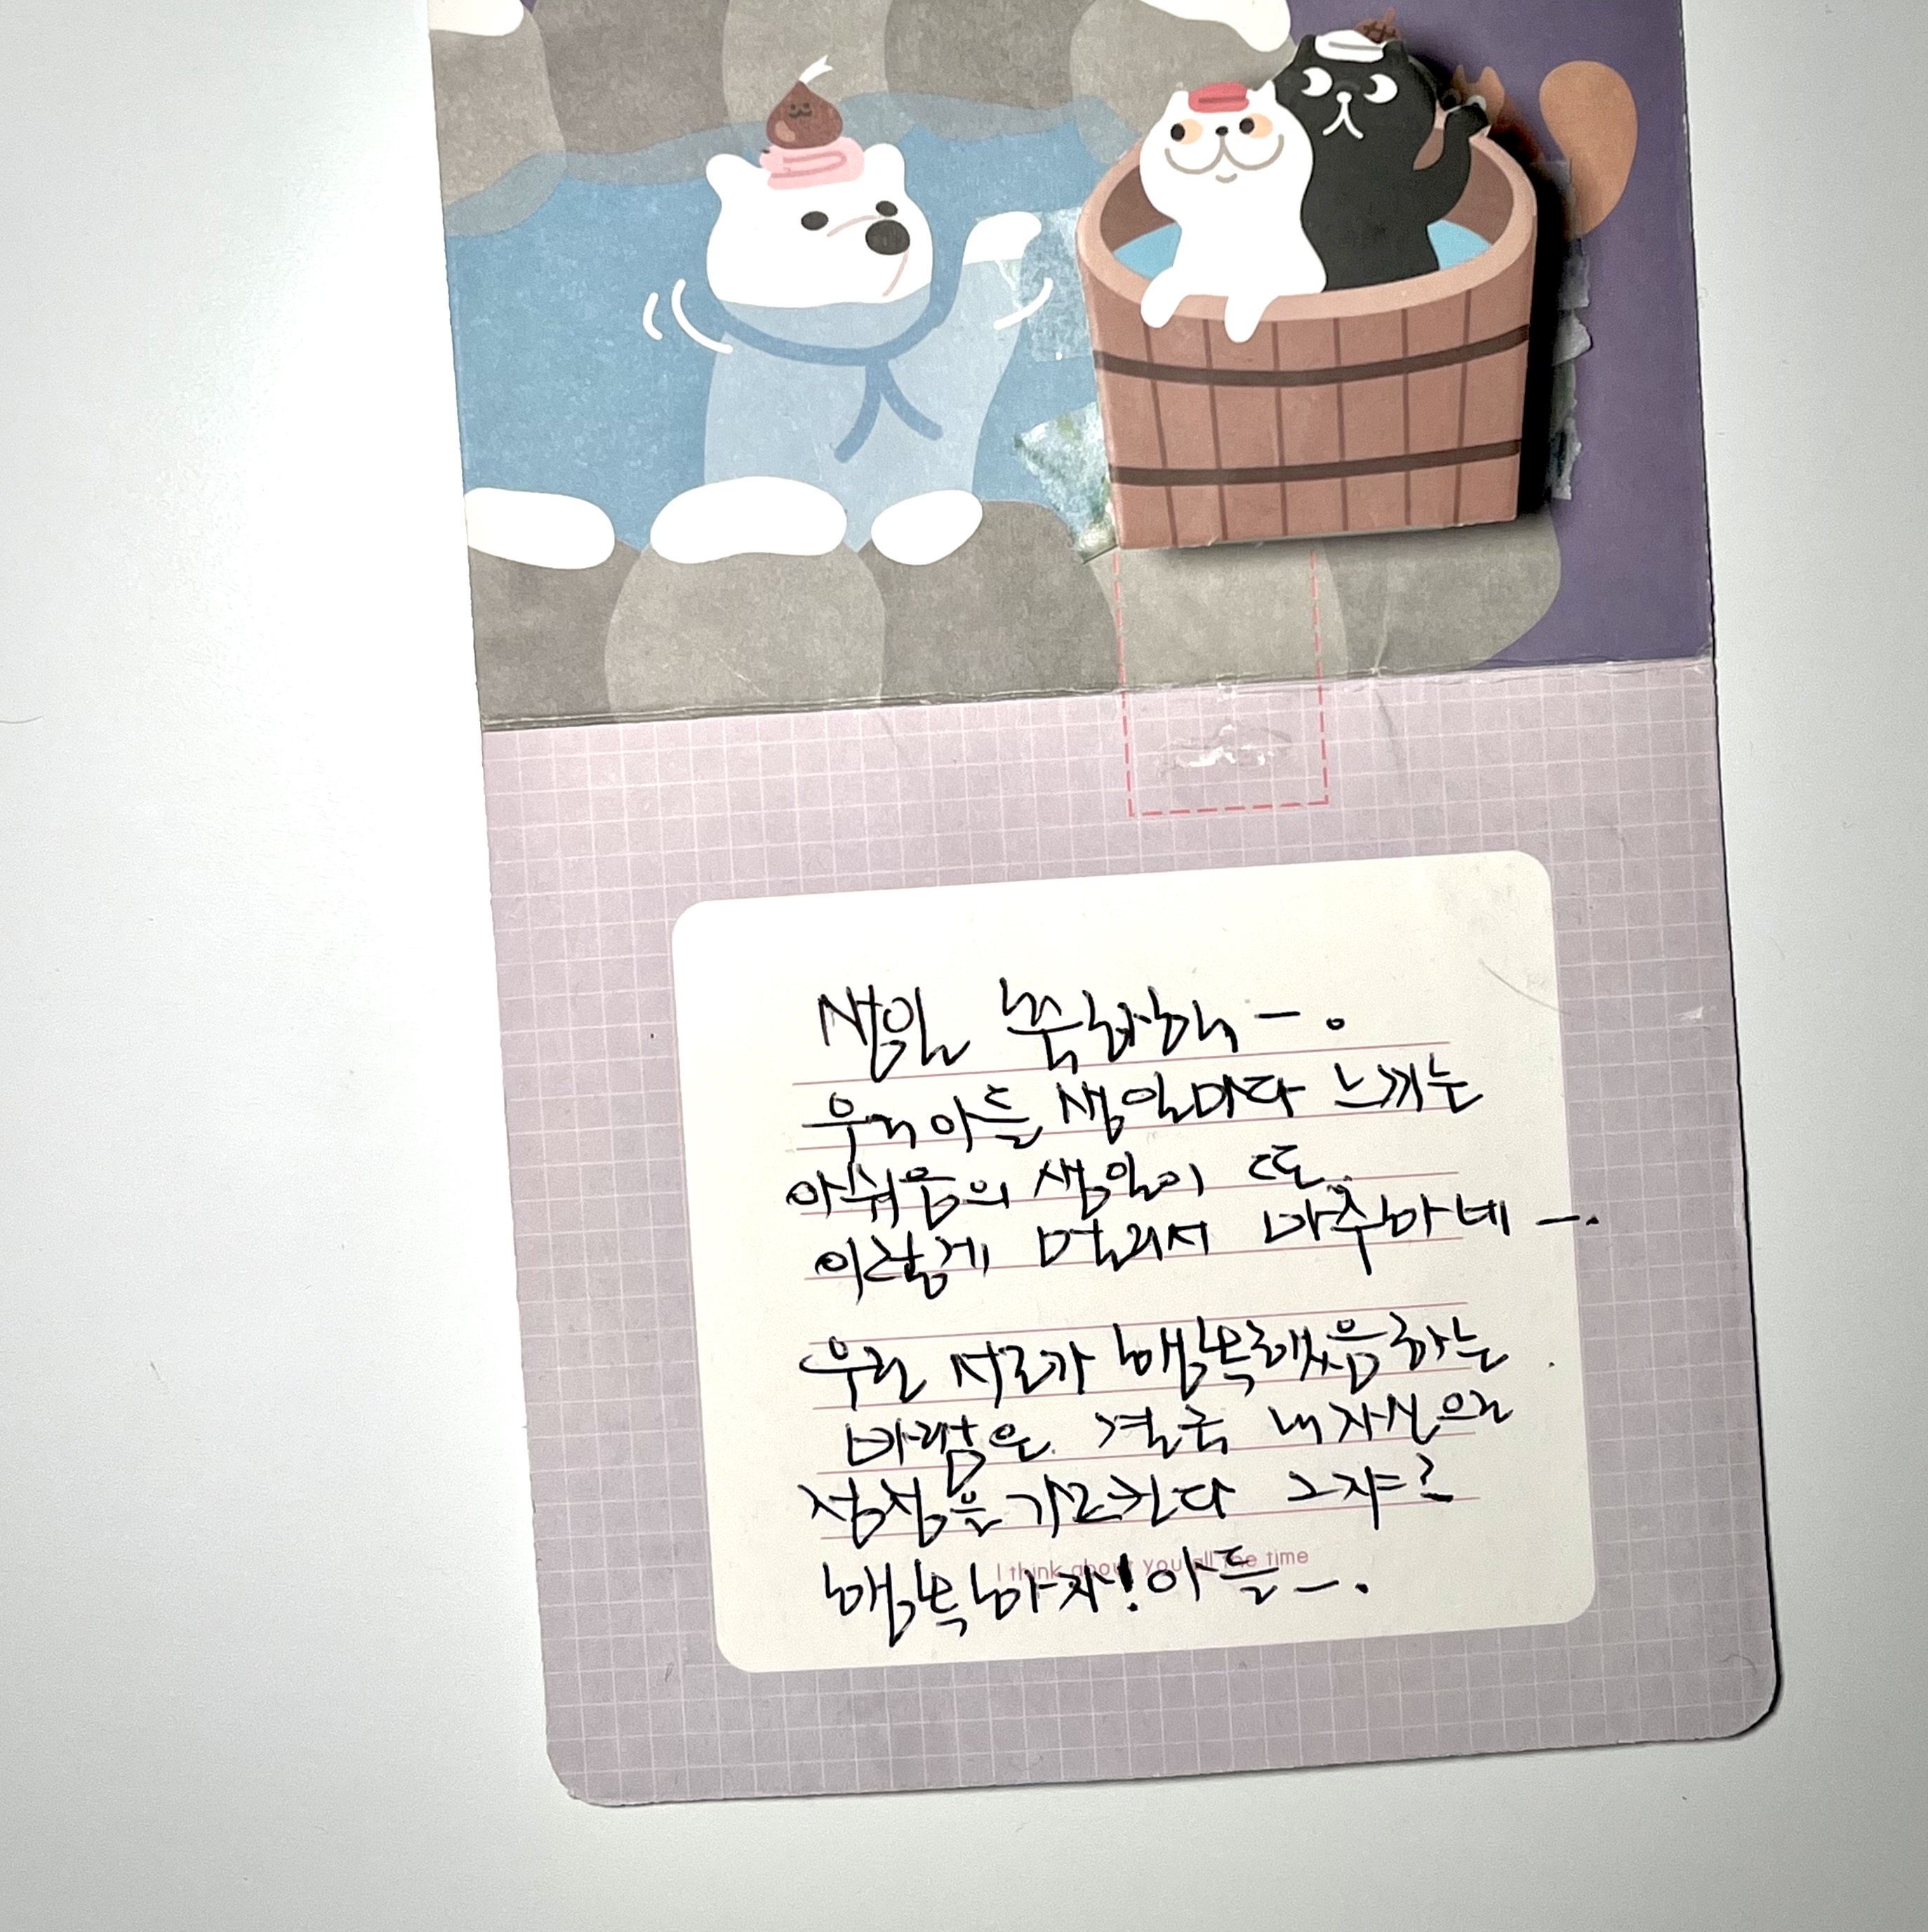 생일 축하해 ㅡ.
우리아들 생일마다 느끼는
아쉬움의 생일이 또
이렇게 멀리서 마주하네 ㅡ.
우린 서로가 행복했음하는
바람은 결국 내자신으로
점점을 가르킨다 그쟈?
I think about you all the time
행복하자! 아들ㅡ.